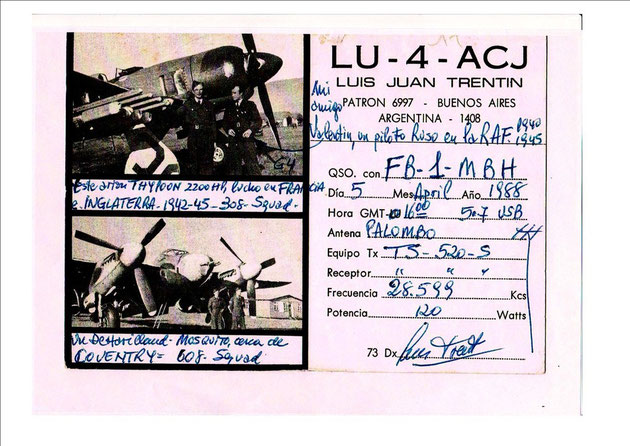 Este avion THYPOON 2200 HP, lucho en FRANCIA
e. INGLATERRA. 1942-45-308-Squad.
Un DeHavilland- MOSQUITO, cerca de
COVENTRY= 608- Squad
LU - 4 - ACJ
LUIS JUAN TRENTIN
PATRON 6997 - BUENOS AIRES
ARGENTINA - 1408
Mi
amigo
Valentin, un piloto Ruso en la RAF 1940
1945
QSO. con FB-1-MBH
Día 5 Mes April Año 1988
Hora GMT 16 00 5-7 USB
Antena PALOMBO
Equipo Tx TS-520-S
Receptor " " "
Frecuencia 28.599 Kcs
Potencia 120 Watts
73 Dx Luis Trentin